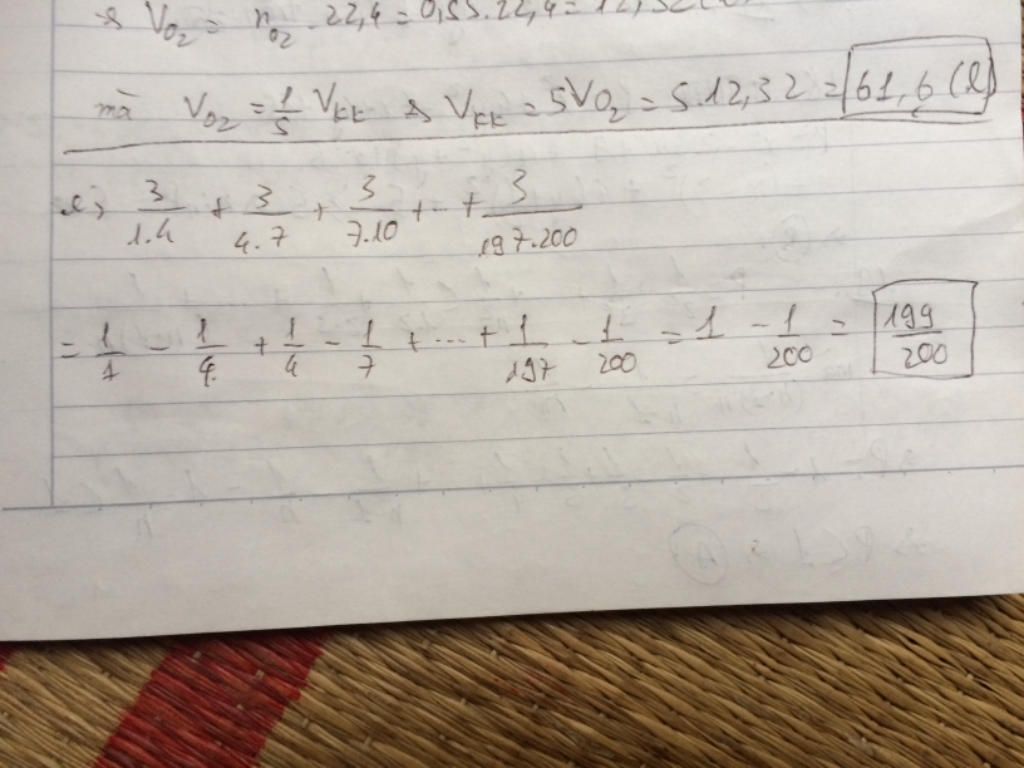 V_O2 = n_O2 . 22,4 = 0,55.22,4 = 12,32
mà V_O2 = 1/5 V_KK => V_KK = 5VO2 = 5.12,32 = 61,6 (l)
e, 3/1.4 + 3/4.7 + 3/7.10 + ... + 3/197.200
= 1/1 - 1/4 + 1/4 - 1/7 + ... + 1/197 - 1/200 = 1 - 1/200 = 199/200